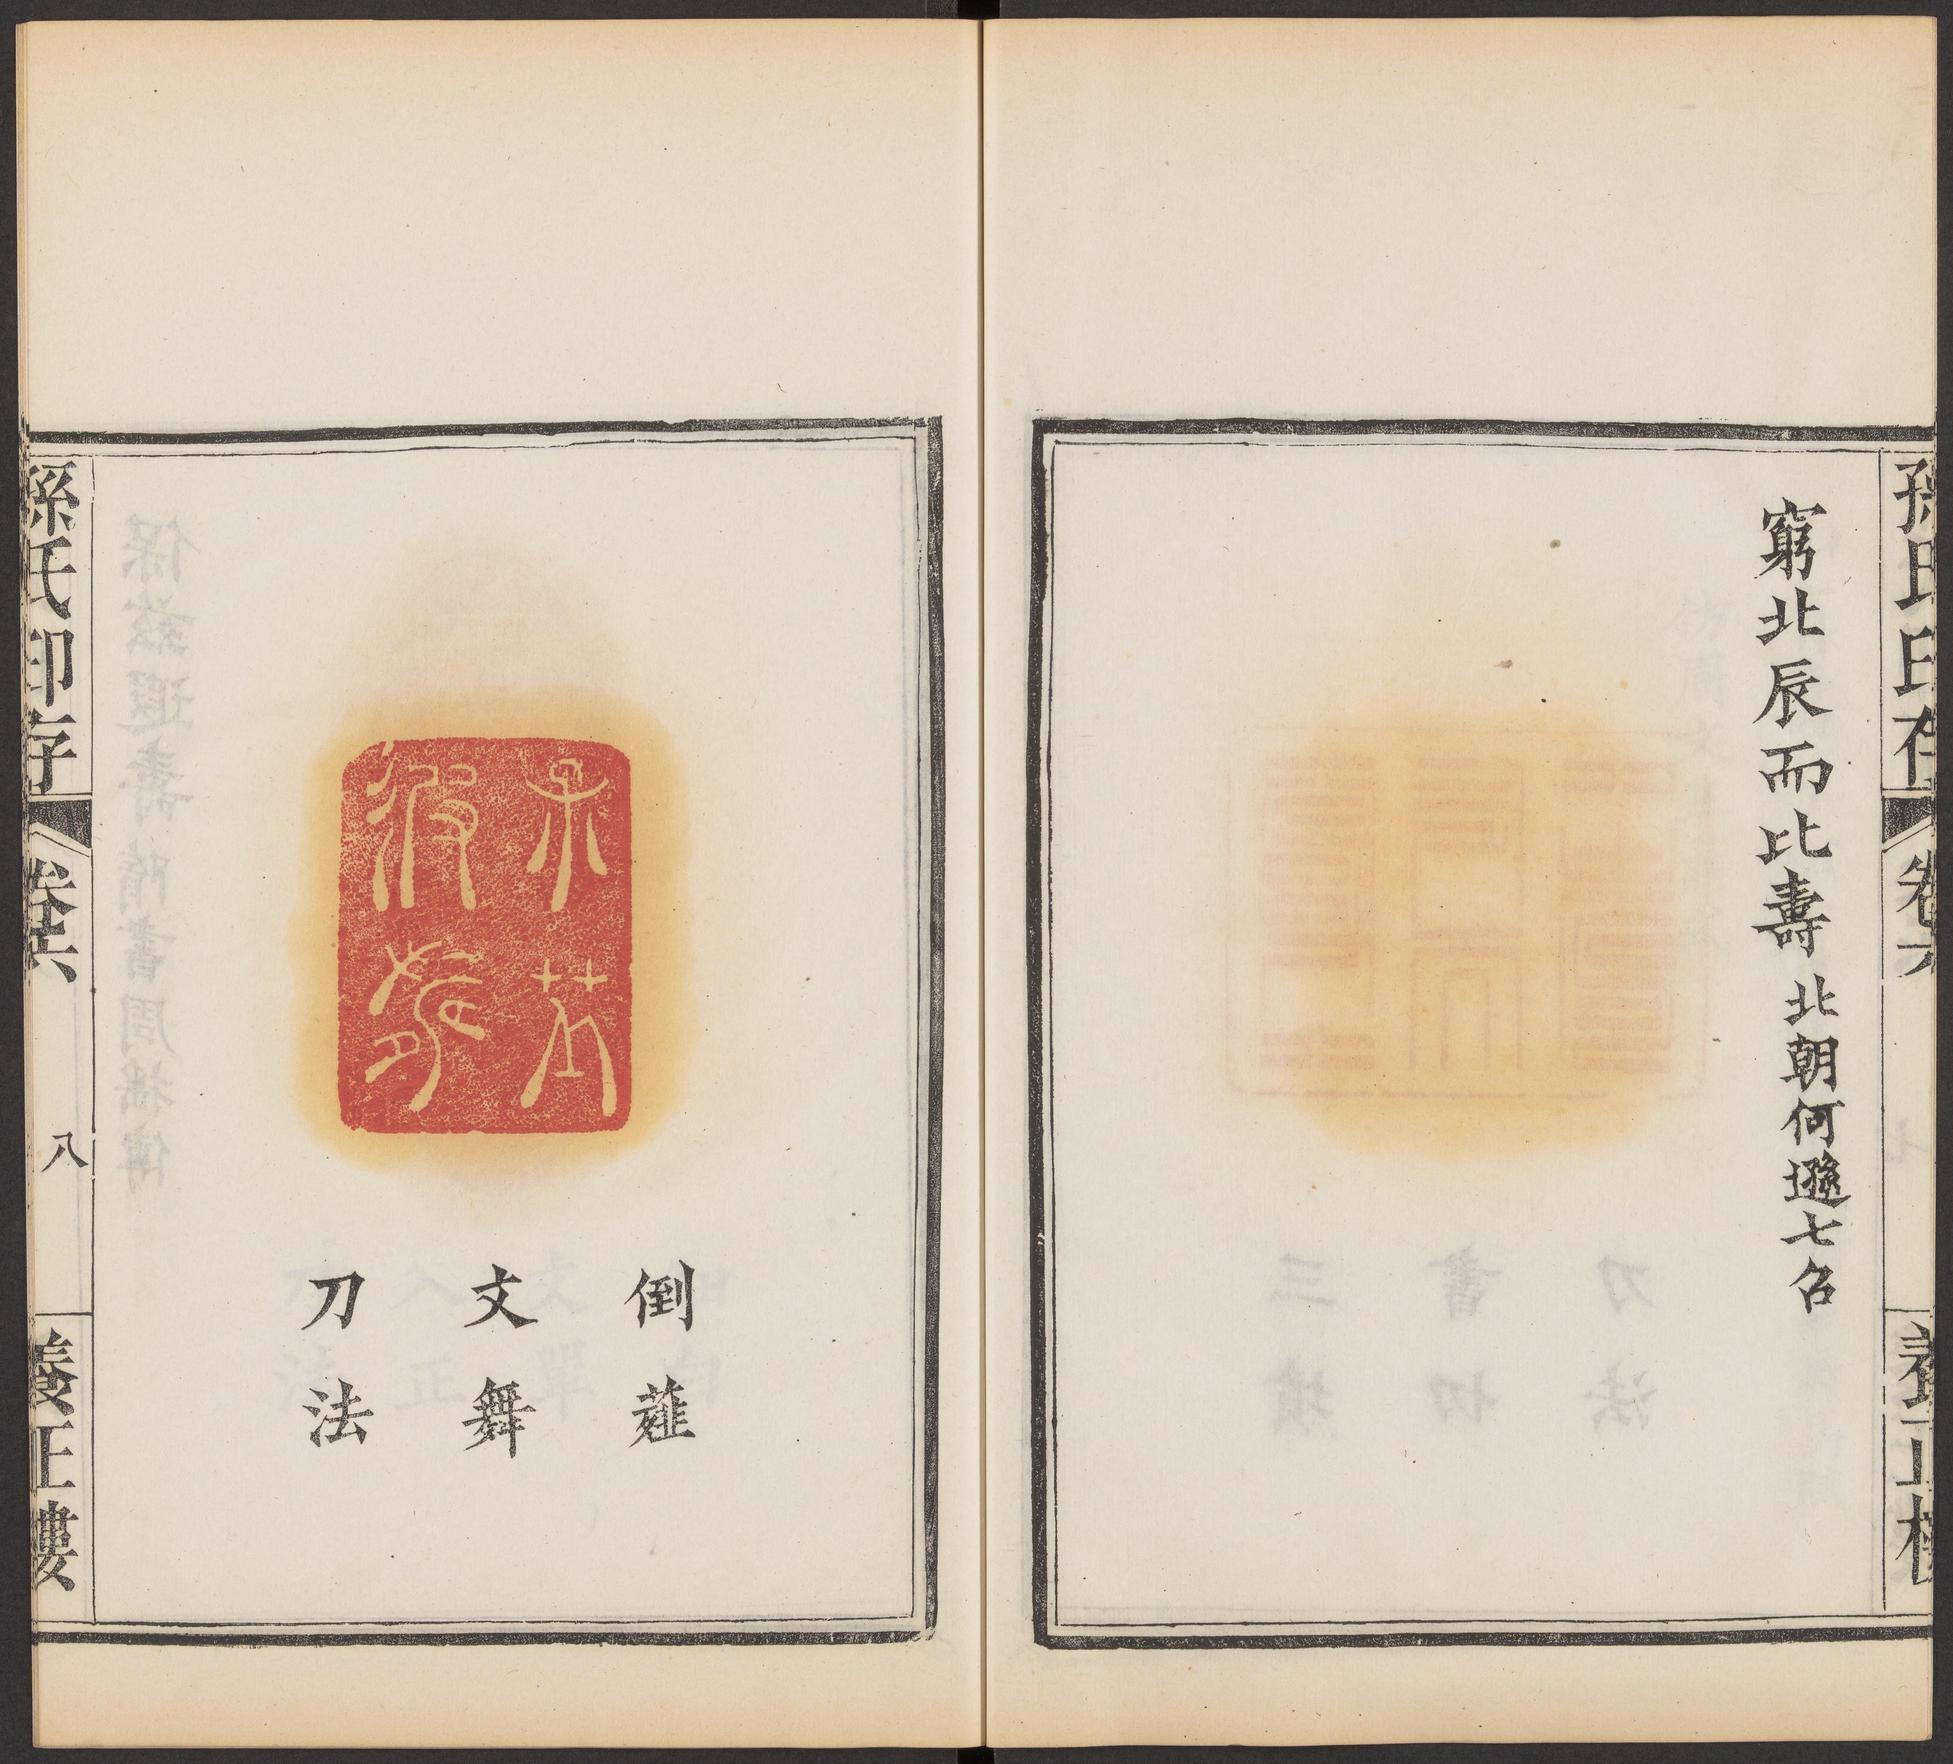 孫氏印存 卷六 養正樓
窮北辰而比壽 北朝何遜七召
倒薤
文舞
刀法
孫氏印存 卷六 八 養正樓